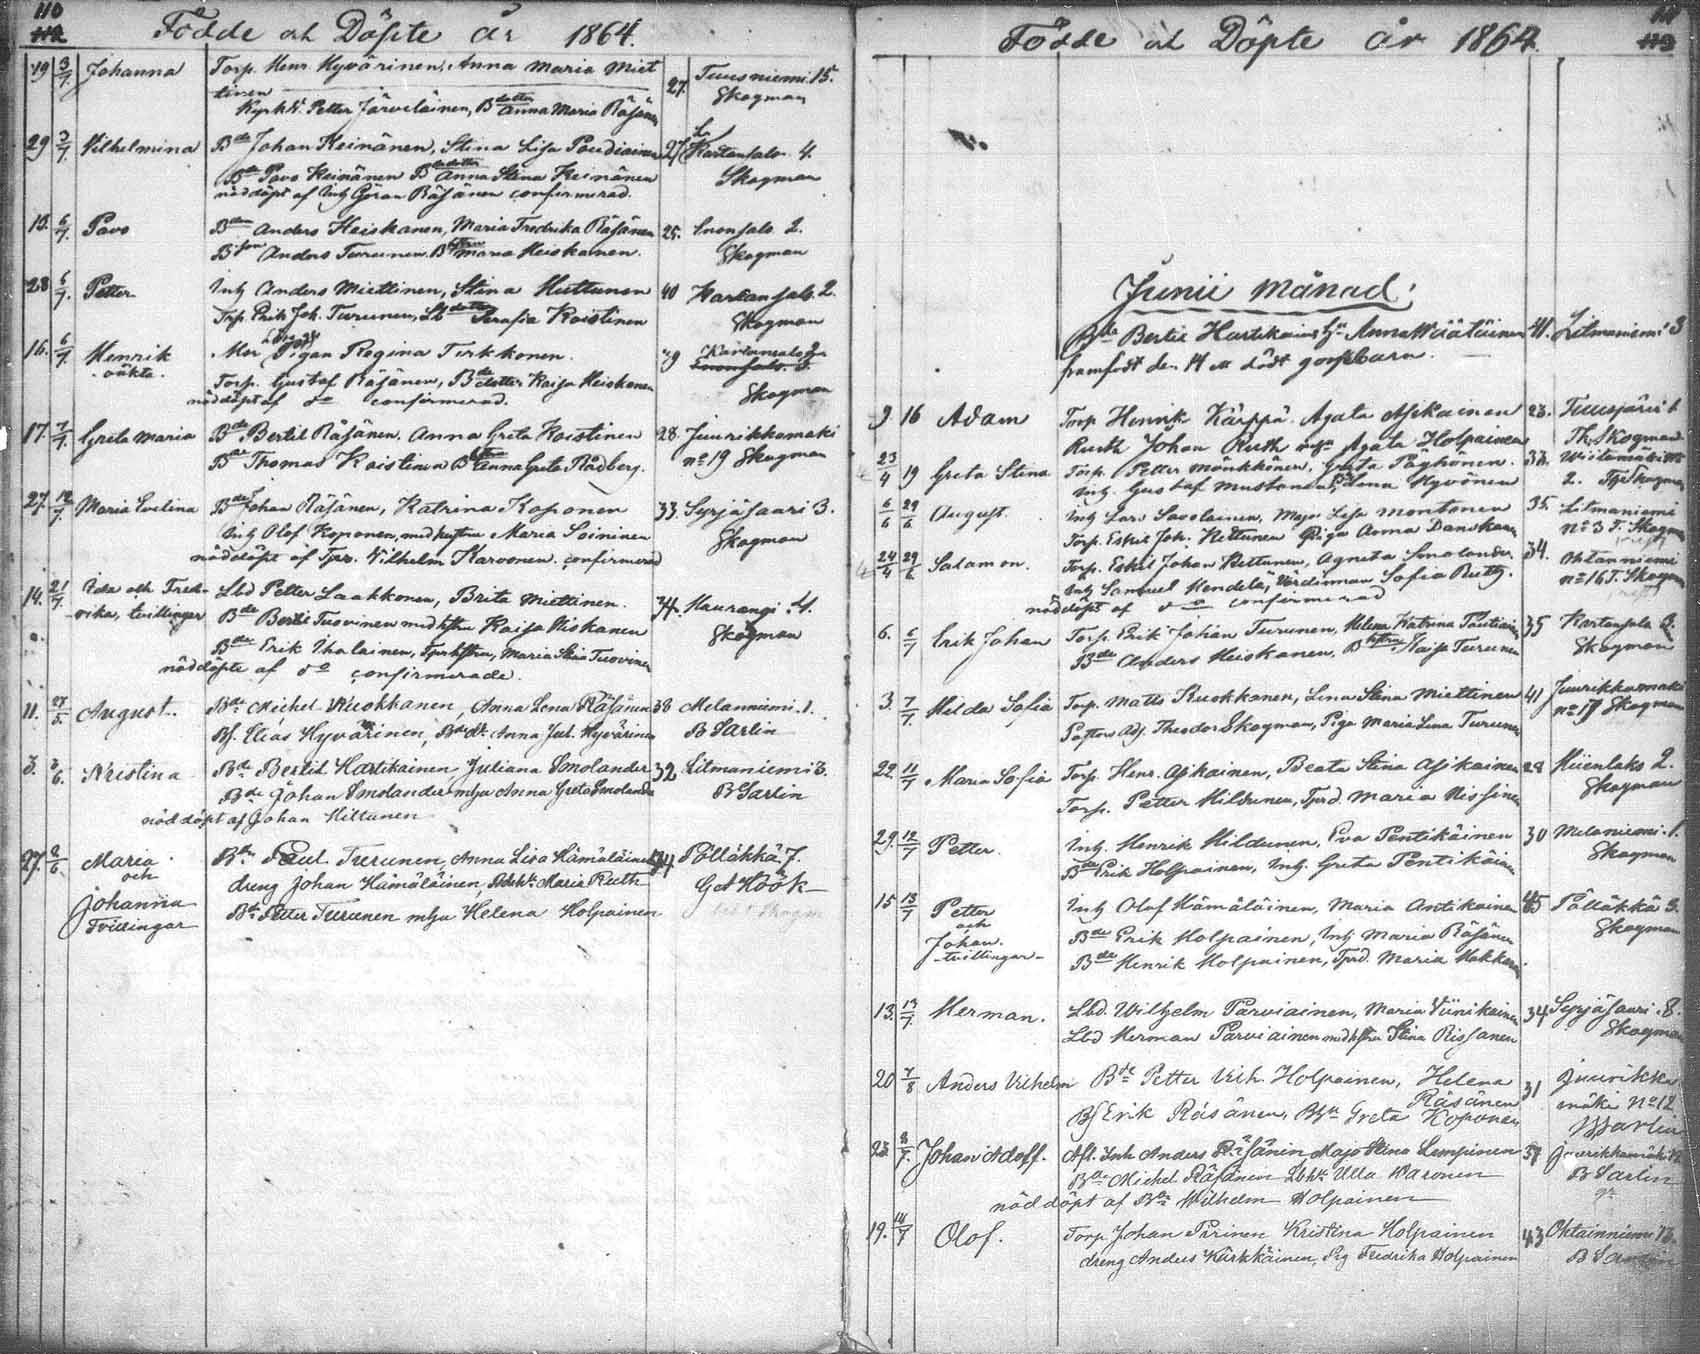 110
112
Födde och Döpte år 1864.
19 3/7 Johanna Torp. Henr Hyvärinen, Anna Maria Miet 27. Tuusniemi 15.
tinen Skogman
Kyrkv. Petter Järveläinen, Bdotter Anna Maria Räsänen
29 3/7 Vilhelmina Bde Johan Keinänen, Stina Lisa Poudiainen 27 Kartansalo 4.
Bde Pavo Keinänen Bdedotter Anna Stina Keinänen Skogman
nöddöpt af Inh Göran Räsänen confirmerad.
13. 6/7. Pavo Bden Anders Heiskanen, Maria Fredrika Räsänen 25. Enonsalo 2.
Bson Anders Turunen. Bhstru Maria Heiskanen. Skogman
28 6/7. Petter Inh Anders Miettinen, Stina Huttunen 40 Kartansalo 2.
Trp. Erik Joh. Turunen, Lbdotter Serafia Koistinen Skogman
16. 6/7 Henrik Mor Pigan Regina Tirkkonen. 29 Kartansalo 2
oäkta. Enonsalo 3
Torp. Gustaf Räsänen, Bdedotter Kaisa Heiskanen Skogman
nöddöpt af do confirmerad.
17. 7/7. Greta Maria Bde Bertil Räsänen. Anna Greta Koistinen 28. Juurikkamäki
Bde Thomas Koistinen Bhstru Anna Greta Rådberg. no 19 Skogman
27. 12/7. Maria Evelina Bde Johan Räsänen, Katrina Koponen 33. Syrjäsaari 3.
Inh Olof Koponen, med hustru Maria Soininen Skogman
nöddöpt af Tpr. Vilhelm Karvonen. confirmerad
14. 21/7 Ida och Fred- Lbd Petter Laakkonen, Brita Miettinen. 34. Haurangi 4.
rika, tvillingar Bde Bertil Tuovinen med hstru Kaisa Niskanen Skogman
Bde Erik Ihalainen, Tprhstru, Maria Stina Tuovinen
nöddöpte af do confirmerade.
11. 27/5. August. Bde Michel Kuokkanen, Anna Lena Räsänen 38 Melanniemi 1.
Bs. Elias Hyvärinen, Bde dr. Anna Jul. Hyvärinen B Sarlin
3. 3/6. Kristina Bde Bertil Hartikainen Juliana Smolander 32 Litmaniemi 3.
Bde Johan Smolander mha Anna Greta Smolander B Sarlin
nöddöpt af Johan Hiltunen
27. 2/6 Maria Bde Paul Turunen, Anna Lisa Hämäläinen 34 Pölläkkä 7.
och dreng Johan Hämäläinen, Maria Ruth G A Höök
Johanna Bde Petter Turunen mha Helena Holpainen
Tvillingar
113
Födde och Döpte år 1864.
Junii månad.
Bde Bertil Hartikainens Hu Anna Väätäinen 41. Litmaniemi 3
framfödt den 14 ett dödt gossebarn.
9 16 Adam Torp Henrik Kärppä. Agata Asikainen 23. Tuusjärvi 6
Ruth Johan Ruth Agata Holpainen Th. Skogman
23/4 19 Greta Stina Torp. Petter Mönkkönen, Greta Päykönen. 33.
Inh. Gustaf Mustonen, Lena Hyvönen 2. Skogman
6/6 29/6 August. Inh Lars Savolainen, Maja Lisa Montonen 35. Litmaniemi
Torp. Eskil Joh. Kettunen Piga Anna Danskanen No 3 T. Skogman
24/4 29/6 Salamon. Torp. Eskil Johan Kettunen, Agneta Smolander 34. Ohtanniemi
Inh Samuel Hendelä, Värdinnan Sofia Ruth. no 16 T. Skogman
nöddöpt af do confirmerad
6. 6/7 Erik Johan Torp. Erik Johan Turunen, Helena Katrina Poutiainen 35 Kartansalo 2.
Bde Anders Heiskanen, Bhstru Kaisa Turunen Skogman
3. 7/7 Hilda Sofia Torp. Matts Kuokkanen, Lena Stina Miettinen 41 Juurikkamäki
Pastors Adj. Theodor Skogman, Piga Maria Lena Turunen no 19 Skogman
22. 11/7 Maria Sofia Torp. Henr. Asikainen, Beata Stina Asikainen 28 Hiienlaks 2.
Torp. Petter Hildunen, Tprd. Maria Nissinen Skogman
29. 12/7 Petter. Inh. Henrik Hildunen, Eva Pentikäinen 30 Melaniemi 1.
Bde Erik Holpainen, Inh. Greta Pentikäinen Skogman
15 13/7 Petter Inh Olof Hämäläinen, Maria Antikainen 45 Pölläkkä 3.
och Bde Erik Holpainen, Inh Maria Räsänen Skogman
Johan. Bde Henrik Holpainen, Tprd. Maria Hakkarainen
tvillingar
13. 13/7. Herman. Lbd. Wilhelm Parviainen, Maria Viinikainen 34 Syrjäsaari 8.
Lbd Herman Parviainen med hstru Stina Rissanen Skogman
20 7/8 Anders Vilhelm Bde Petter Vilh. Holpainen, Helena 31 Juurikka
Räsänen mäki No 12
Bs Erik Räsänen, Bhu Greta Koponen B Sarlin
23 8/7. Johan Adolf. Afl. Inh Anders Räsänen Maja Stina Lempinen 37 Juurikkamäki 12
Bde Michel Räsänen Ulla Varonen B Sarlin
nöddöpt af Bde Wilhelm Holpainen
19. 14/7 Olof. Torp Johan Pirinen Kristina Holpainen 43 Ohtainniemi 13.
dreng Anders Kärkkäinen, Pig Fredrika Holpainen B Sarlin